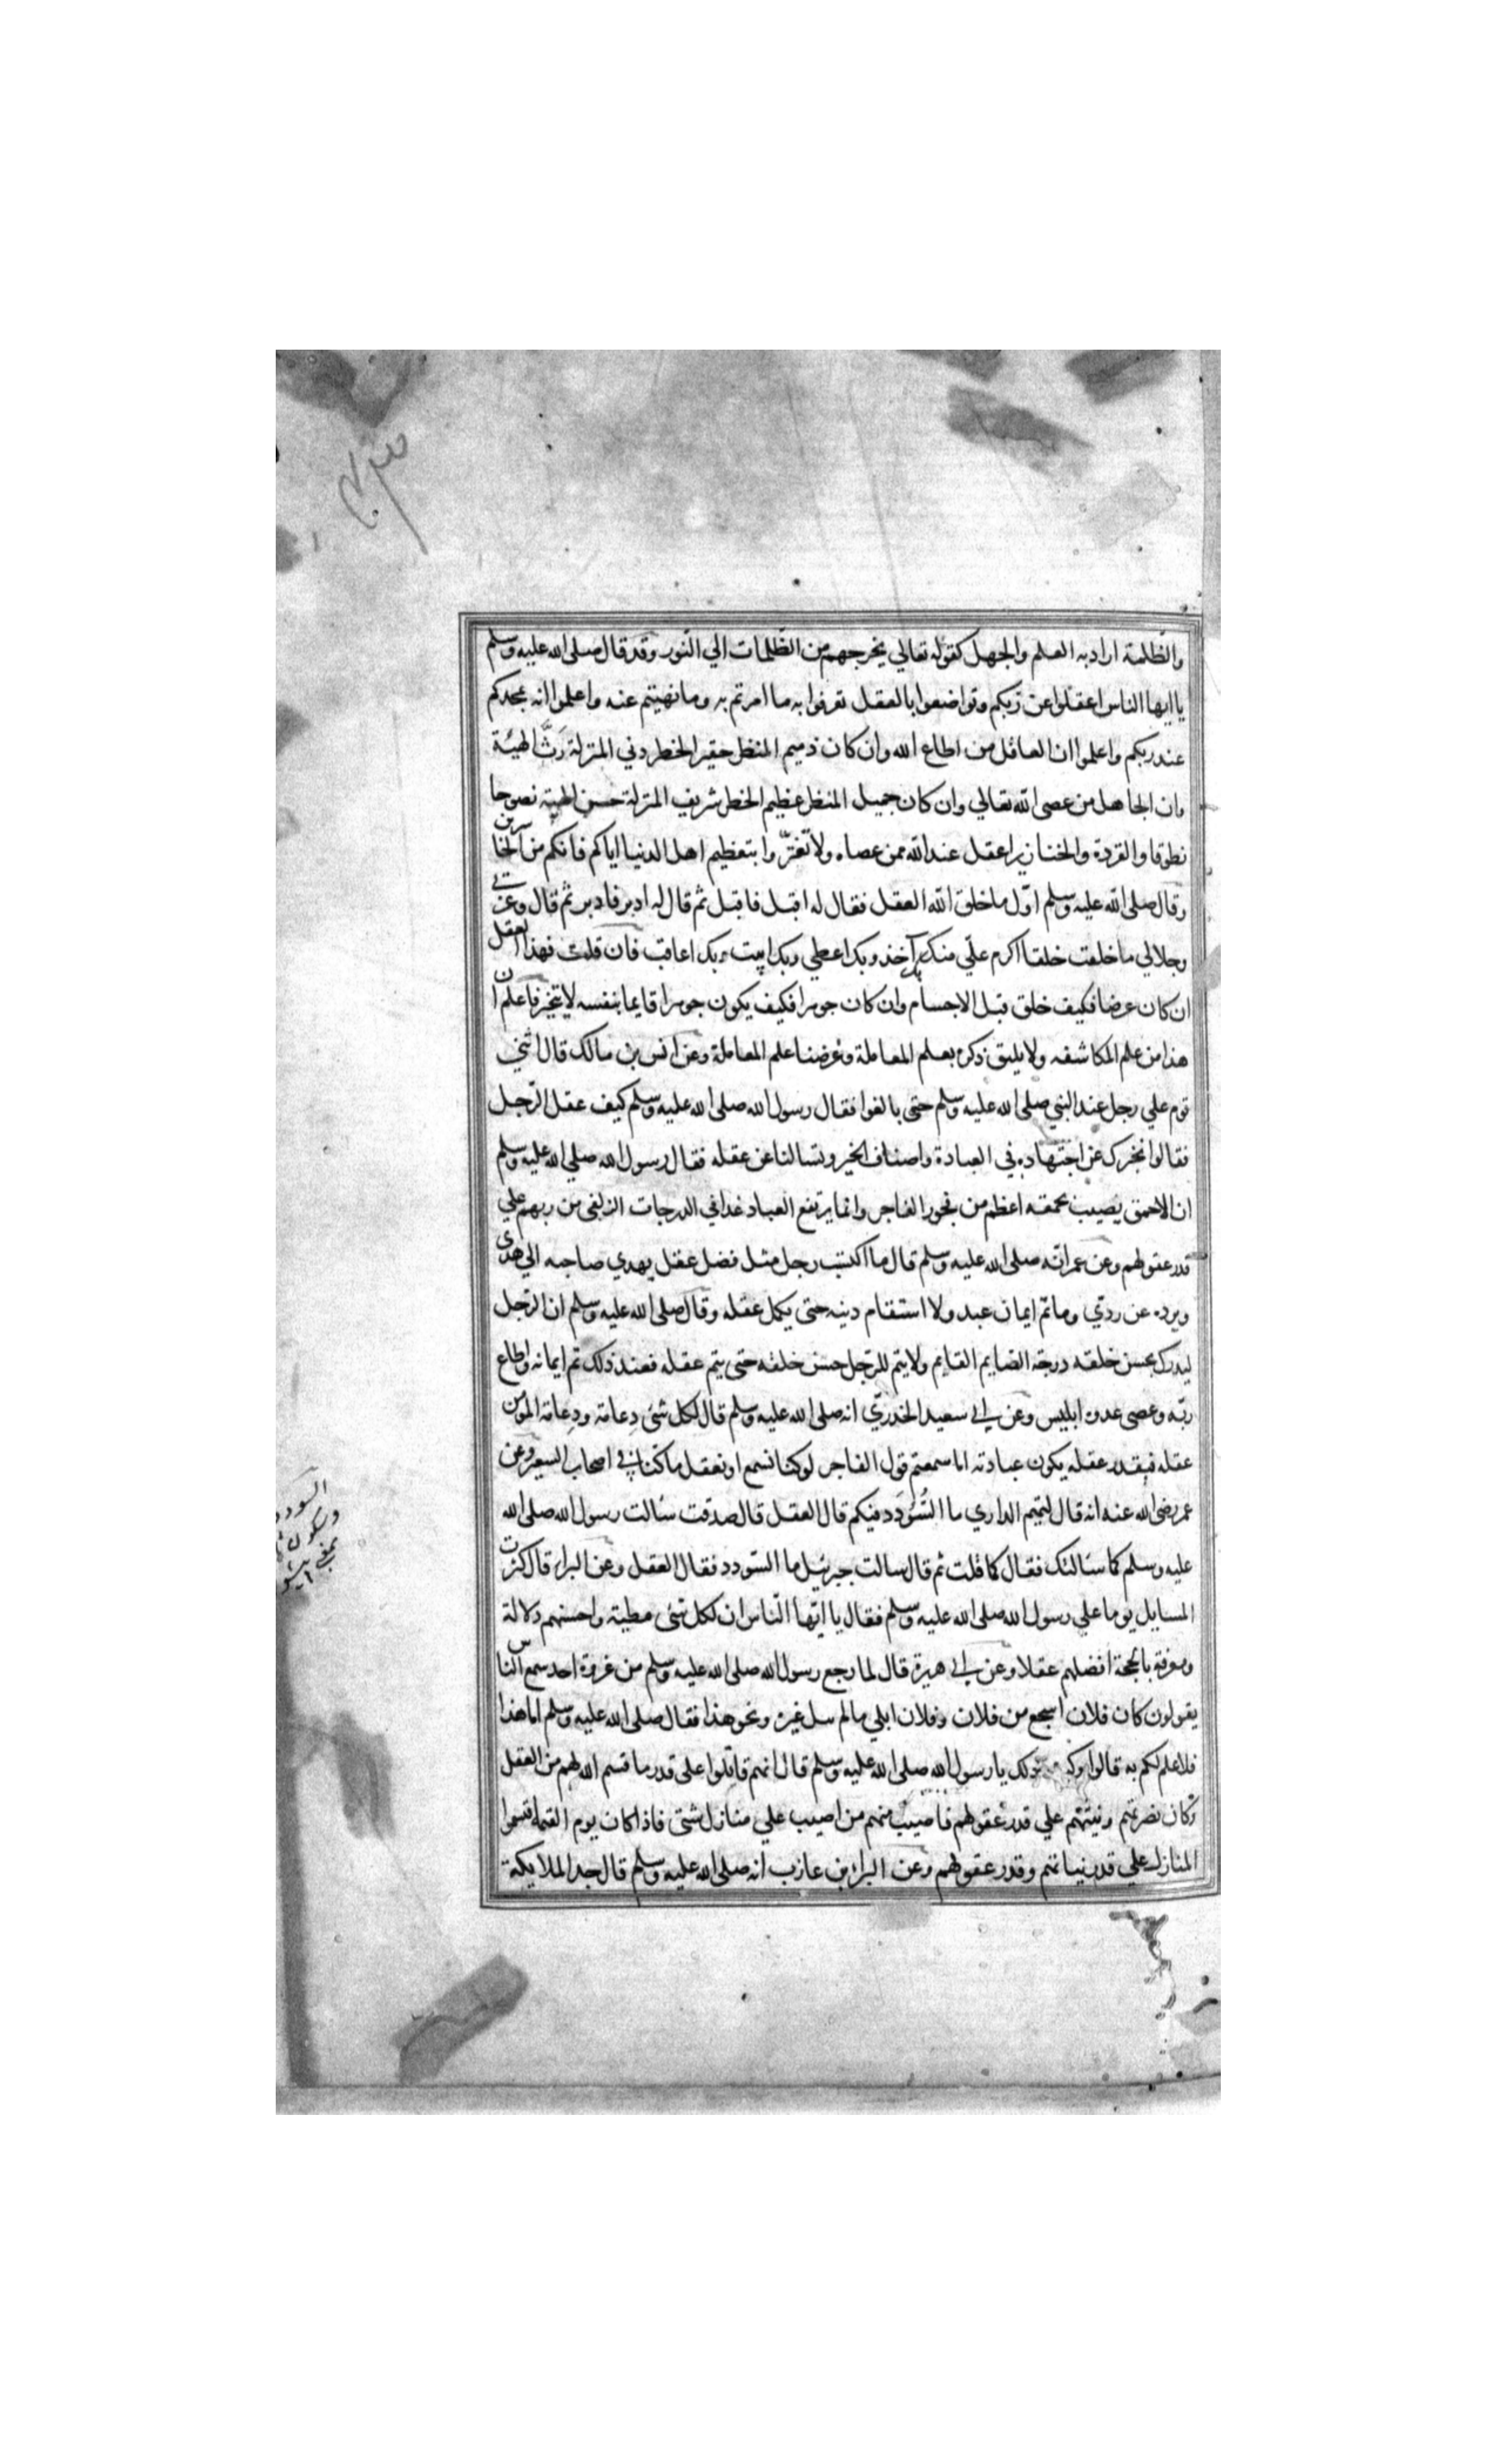 والظلمة اراد به العلم والجهل كقوله تعالي يخرجهم من الظلمات الي النور وقد قال صلى الله عليه وسلم
يا ايها الناس اعقلوا عن ربكم وتواضعوا بالعقل تعرفوا به ما امرتم به وما نهيتم عنه واعلموا انه يجدكم
عند ربكم واعلموا ان العاقل من اطاع الله وان كان ذميم المنظر حقير الخطر دني المنزلة رثّ الهيئة
وان الجاهل من عصى الله تعالي وان كان جميل المنظر عظيم الخطر شريف المنزلة حسن الهيئة نصوحا
نطوقا والقردة والخنازير اعقل عند الله ممن عصاه ولا تغترّوا بتعظيم اهل الدنيا اياكم فانكم من الخاسرين
وقال صلى الله عليه وسلم اوّل ما خلق الله العقل فقال له اقبل فاقبل ثم قال له ادبر فادبر ثم قال وعزتي
وجلالي ما خلقت خلقا اكرم علّي منك بك آخذ وبك اعطي وبك ابيت وبك اعاقب فان قلت فهذا العقل
ان كان عرضا فكيف خلق قبل الاجسام وان كان جوهرا فكيف يكون جوهرا قايما بنفسه لا يتحيز فاعلم ان
هذا من علم المكاشفه ولا يليق ذكره بعلم المعاملة وغرضنا علم المعاملة وعن انس بن مالك قال اثني
قوم علي رجل عند النبي صلى الله عليه وسلم حتى بالغوا فقال رسول الله صلى الله عليه وسلم كيف عقل الرّجل
فقالوا نخبرك عن اجتهاده في العبادة واصناف الخير وتسالنا عن عقله فقال رسول الله صلي الله عليه وسلم
ان الاحمق يصيب بحمقه اعظم من فجور الفاجر وانما يرتفع العباد غدا في الدرجات الزلفى من ربهم علي
قدر عقولهم وعن عمر انّه صلى الله عليه وسلم قال ما اكتسب رجل مثل فضل عقل يهدي صاحبه الي هدى
ويرده عن ردّي وما تمّ ايمان عبد ولا استقام دينه حتى يكمل عقله وقال صلى الله عليه وسلم ان الرّجل
ليدرك بحسن خلقه درجة الصايم القايم ولا يتم للرّجل حسن خلقه حتى يتم عقله فعند ذلك تم ايمانه واطاع
ربّه وعصى عدوه ابليس وعن ابي سعيد الخدريّ انه صلى الله عليه وسلم قال لكل شئ دِعامة ودِعامة المومن
عقله فبقدر عقله يكون عبادته اما سمعتم قول الفاجر لو كنا نسمع او نعقل ما كنا في اصحاب السعير وعن
عمر رضى الله عنه انه قال لتميم الداري ما السُّؤدَد فيكم قال العقل قال صدقت سالت رسول الله صلى الله
عليه وسلم كما سئالتك فقال كما قلت ثم قال سالت جبرئيل ما السّودد فقال العقل وعن البراء قال كثرت
المسايل يوما علي رسول الله صلى الله عليه وسلم فقال يا ايّها النّاس ان لكل شئ مطية واحسنهم دلالة
ومعرفة بالحجة افضلهم عقلا وعن ابي هريرة قال لما رجع رسول الله صلى الله عليه وسلم من غزوة احد سمع النّاس
يقولون كان فلان اسجع من فلان وفلان ابلي ما لم يبل غيره ونحو هذا فقال صلى الله عليه وسلم اما هذا
فلا علم لكم به قالوا وكيف ذلك يا رسول الله صلى الله عليه وسلم قال انهم قاتلوا على قدر ما قسم الله لهم من العقل
وكان نصرتهم ونيتّهم علي قدر عقولهم فاصيب منهم من اصيب علي منازل شتّى فاذا كان يوم القيمة اقتسموا
المنازل علي قدر نياتهم وقدر عقولهم وعن البراء بن عازب انه صلى الله عليه وسلم قال جد الملايكة
السودد